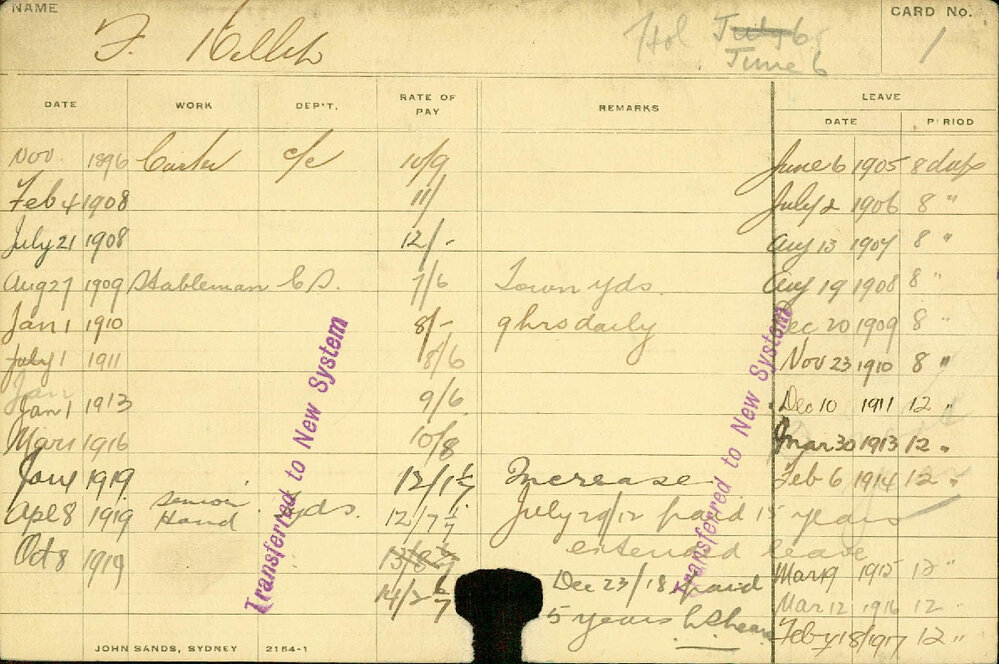 NAME
CARD No.
F. Kelleh
Hol July 6
June 6
1
DATE WORK DEP'T. RATE OF PAY REMARKS LEAVE
DATE PERIOD
Nov. 1896 Carter c/c 10/9 June 6 1905 8 days
Feb 4 1908 11/ July 2 1906 8 "
July 21 1908 12/- Aug 13 1907 8 "
Aug 27 1909 Stableman C.S. 7/6 Town Yds. Aug 19 1908 8 "
Jan 1 1910 8/- 9 hrs daily Dec 20 1909 8 "
July 1 1911 8/6 Nov 23 1910 8 "
Jan
Jan 1 1913 9/6 Dec 10 1911 12 "
Mar 1 1916 10/8 Mar 30 1913 12 "
Jan 1 1919 12/1 Increase Feb 6 1914 12 "
Apl 8 1919 Senior Hand Yds. 12/7 July 29/12 paid 15 years
extended leave
Oct 8 1919 13/8 Mar 9 1915 12 "
14/2 Dec 23/18 paid Mar 12 1916 12 "
5 years Feby 18/1917 12 "
Transferred to New System
Transferred to New System
JOHN SANDS, SYDNEY 2154-1